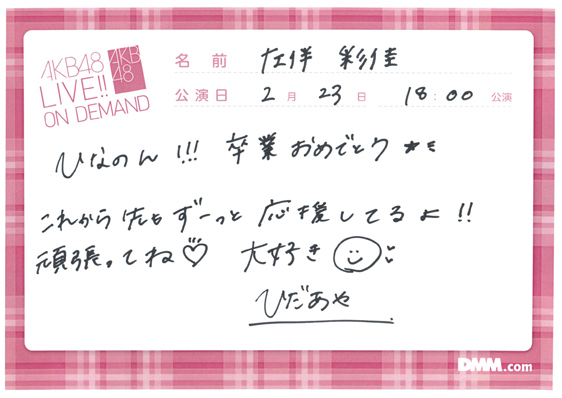 AKB48
LIVE!!
ON DEMAND
AKB
48
名前 左伴 彩佳
公演日 2月 23日 18:00 公演
ひなのん!!! 卒業おめでとう
これから先もずーっと応援してるよ!!
頑張ってね♡ 大好き
ひだあや
DMM.com